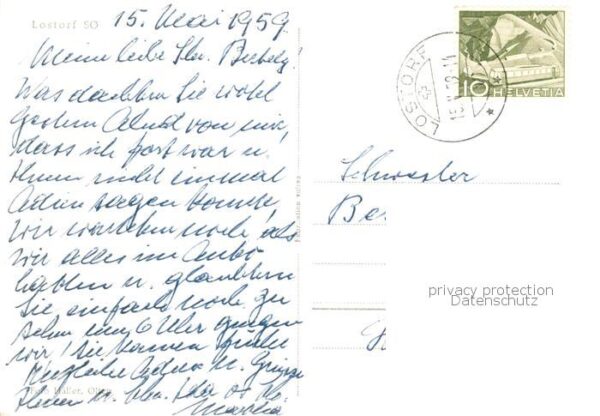 Lostorf SO
15. Mai 1959.
Meine liebe Schw. Berbely!
Was dachten Sie wohl
gestern Abend von mir,
dass ich fort war u.
Ihnen nicht einmal
Adieu sagen konnte,
wir warteten noch, als
wir alles im Auto
hatten u. glaubten
Sie, einfach noch zu
sehen um 6 Uhr gingen
wir! Sie kamen
Herzliche u. Grüsse
Ihnen u. Schw. Ida
Martha
Haller, Olten
LOSTORF
HELVETIA
10
Schwester
Be
privacy protection
Datenschutz